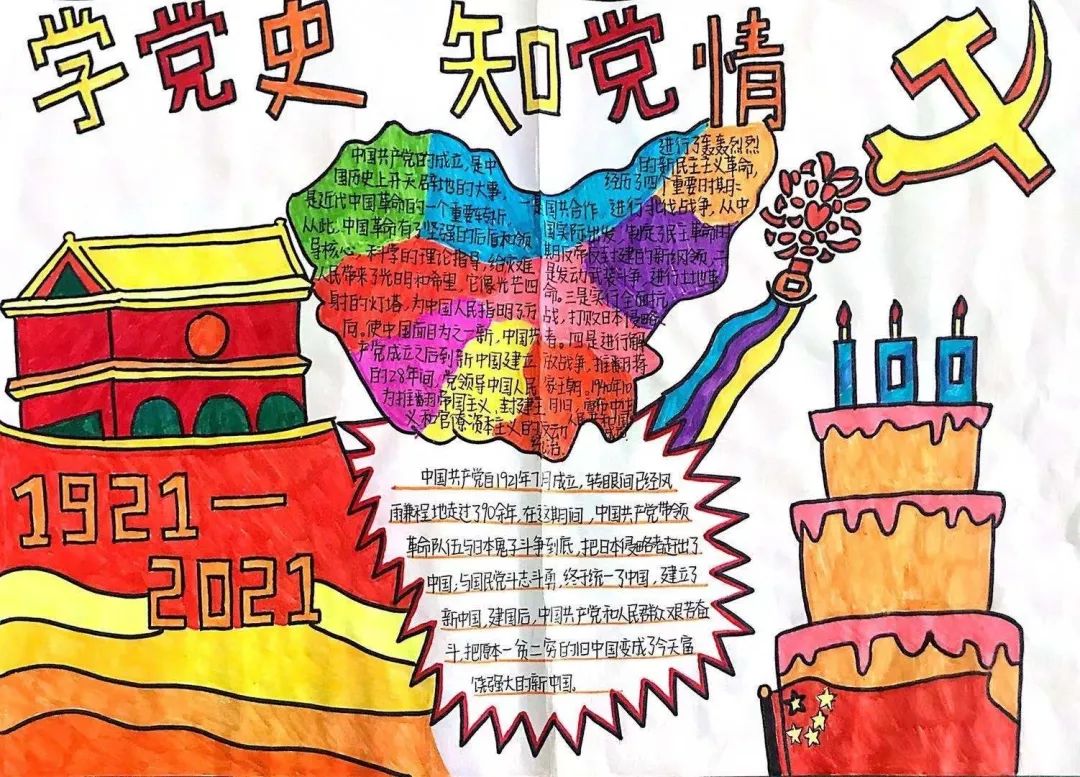 学党史 知党情
中国共产党的成立,是中
国历史上开天辟地的大事,
是近代中国革命的一个重要转折,
从此,中国革命有了坚强的后盾和领
导核心,科学的理论指导,给灾难
人民带来了光明和希望。它像光芒四
射的灯塔,为中国人民指明了方
向。使中国面目为之一新,中国共
产党成立之后到新中国建立
的28年间,党领导中国人民
为推翻帝国主义,封建主
义和官僚资本主义的反动
统治
进行了轰轰烈烈
的新民主主义革命,
经历了四个重要时期:
一是国共合作,进行北伐战争,从中
国实际出发,制定了民主革命时
期反帝反封建的新纲领,二
是发动武装斗争,进行土地革
命。三是实行全面抗
战,打败日本侵略
者。四是进行解
放战争,推翻蒋
家王朝。1949年10
月1日,宣布中华
人民共和国
1921—
2021
100
中国共产党自1921年7月成立,转眼间已经风
雨兼程地走过了90余年,在这期间,中国共产党带领
革命队伍与日本鬼子斗争到底,把日本侵略者赶出了
中国,与国民党斗志斗勇,终于统一了中国,建立了
新中国,建国后,中国共产党和人民群众艰苦奋
斗,把原本一贫二穷的旧中国变成了今天富
饶强大的新中国。